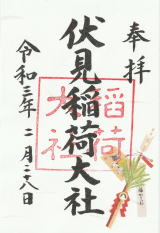 奉拝
伏見稲荷大社
稲荷
大社
令和三年二月二十八日